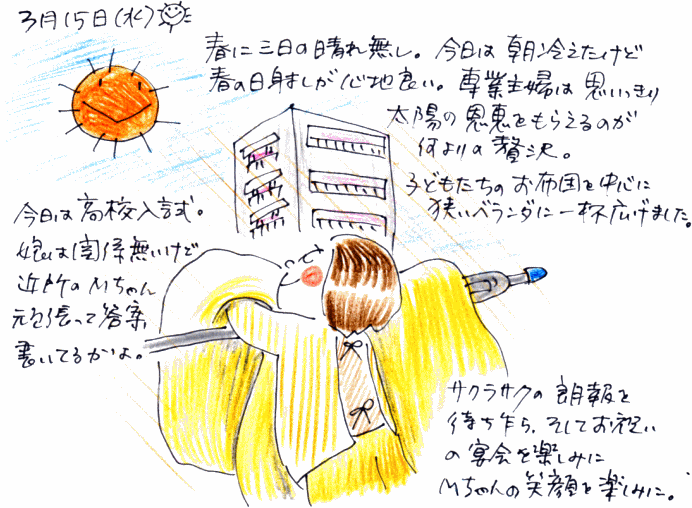 3月15日(水)
春に三日の晴れ無し。今日は朝冷えたけど
春の日射しが心地良い。専業主婦は思いっきり
太陽の恩恵をもらえるのが
何よりの贅沢。
子どもたちのお布団を中心に
狭いベランダに一杯広げました。
今日は高校入試。
娘は関係無いけど
近所のMちゃん
頑張って答案
書いてるかよ。
サクラサクの朗報を
待ち乍ら、そしてお祝い
の宴会を楽しみに
Mちゃんの笑顔を楽しみに。